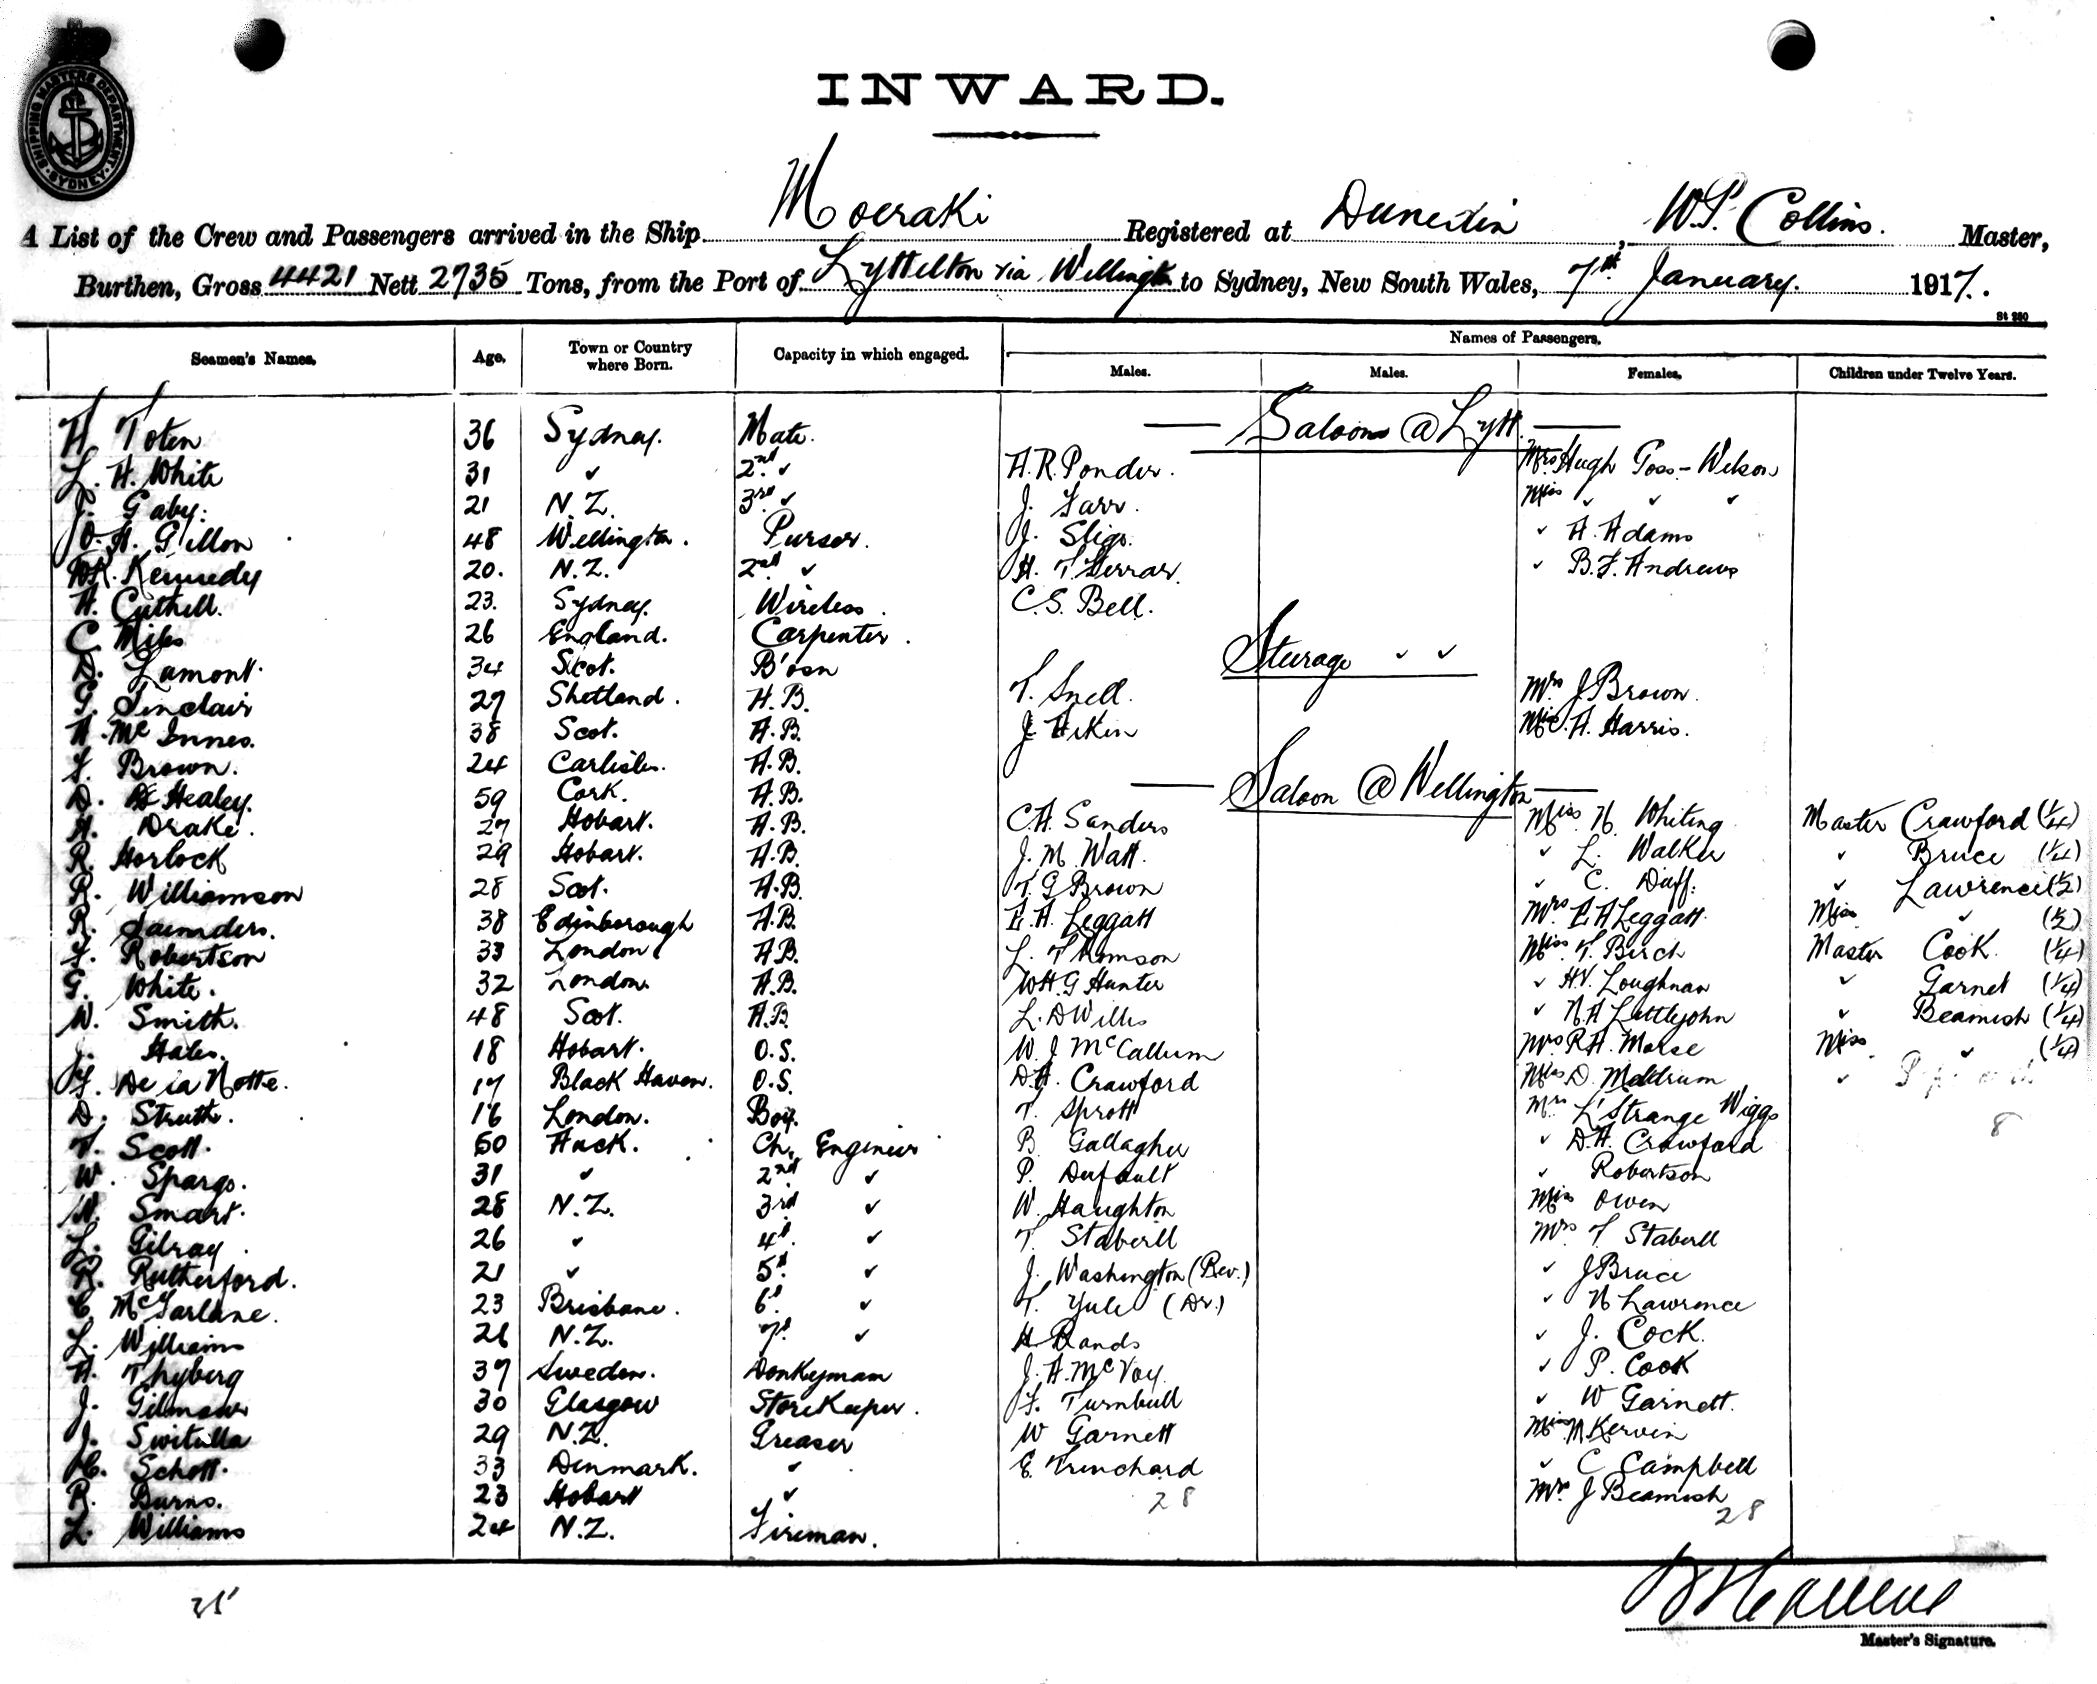 SHIPPING MASTERS DEPARTMENT · SYDNEY ·
INWARD.
A List of the Crew and Passengers arrived in the Ship Moeraki Registered at Dunedin, W.P. Collins. Master,
Burthen, Gross 4421 Nett 2735 Tons, from the Port of Lyttelton via Wellington to Sydney, New South Wales, 7th January. 1917.
St 280
Names of Passengers.
Seamen's Names. Age. Town or Country where Born. Capacity in which engaged. Males. Males. Females. Children under Twelve Years.
— Saloon @ Lytt. —
H. Toten 36 Sydney. Mate.
L. H. White 31 " 2nd " H.R. Ponder. Mrs Hugh Goss-Wilson
J. Gaby. 21 N.Z. 3rd " J. Farr. Miss " " "
O. H. Gillon 48 Wellington. Purser. J. Sligo. " A. Adams
Kennedy 20. N.Z. 2nd " H. T. Ferrar. " B.F. Andrews
A. Cuthell. 23. Sydney. Wireless. C.S. Bell.
C. Miles 26 England. Carpenter.
Steerage " "
D. Lamont. 34 Scot. B'osn
G. Sinclair 27 Shetland. A.B. T. Snell. Mrs J Brown.
A. McInnes. 38 Scot. A.B. J. Aiken Miss A. Harris.
F. Brown. 24 Carlisle. A.B.
— Saloon @ Wellington —
D. Healey. 59 Cork. A.B.
A. Drake. 27 Hobart. A.B. C.A. Sanders Miss N. Whiting Master Crawford (1/4)
R. Horlock 29 Hobart. A.B. J. M. Watt. " L. Walker " Bruce (1/4)
R. Williamson 28 Scot. A.B. T. G Brown " C. Duff. " Lawrence (1/2)
R. Saunders. 38 Edinborough A.B. E. A. Leggatt Mrs E A Leggatt. Miss " (1/2)
F. Robertson 33 London A.B. L. Thomson Miss T. Birch Master Cook (1/4)
G. White. 32 London. A.B. WH. G Hunter " H.V. Loughnan " Garnet (1/4)
W. Smith. 48 Scot. A.B. L. D Willis " N. A Littlejohn " Beamish (1/4)
J. Hales. 18 Hobart. O.S. W. J McCallum Mrs R.A. Morse Miss " (1/4)
F. De la Motte. 17 Black Haven. O.S. D.H. Crawford Miss D. Meldrum "
D. Struth. 16 London. Boy. T. Sprott Mrs L'Strange Wiggs 8
T. Scott. 50 Auck. Ch. Engineer B Gallagher " D.H. Crawford
W. Spargo. 31 " 2nd " P. Dufault " Robertson
W. Smart. 28 N.Z. 3rd " W. Haughton Miss Owen
L. Gilray. 26 " 4th " T. Staberll Mrs T Staberll
R. Rutherford. 21 " 5th " J. Washington (Rev.) " J Bruce
C. McFarlane. 23 Brisbane. 6th " T. Yule (Dr.) " N Lawrence
L. Williams 26 N.Z. 7th " H. Rands " J. Cock.
A. Thyberg 37 Sweden. Donkeyman J. A. McVoy. " P. Cook
J. 30 Glasgow Storekeeper. F. Turnbull " W Garnett.
J. Switalla 29 N.Z. Greaser W Garnett Miss M Kervin
Schott. 33 Denmark. " E. Trenchard " C Campbell
R. Burns. 23 Hobart " 28 Mrs J Beamish
L. Williams 24 N.Z. Fireman. 28
35
Master's Signature.